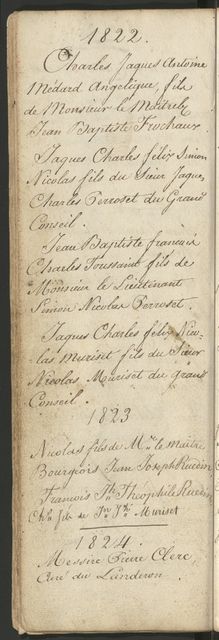 1822.
Charles Jaques Antoine
Médard Angelique, fils
de Monsieur le Maitre
Jean Baptiste Frochaux.
Jaques Charles félix Simon
Nicolas fils du Sieur Jaques
Charles Perroset du Grand
Conseil.
Jean Baptiste francois
Charles Toussaint fils de
Monsieur le Lieutenant
Simon Nicolas Perroset.
Jaques Charles félix Nico-
las Muriset fils du Sieur
Nicolas Muriset du grand
Conseil.
1823
Nicolas fils de Mr. le maitre
Bourgeois Jean Joseph Ruedin
Francois Jh. Théophile Ruedin
fils de Jn. Jh. Muriset
1824.
Messire Pierre Clerc,
Curé du Landeron.